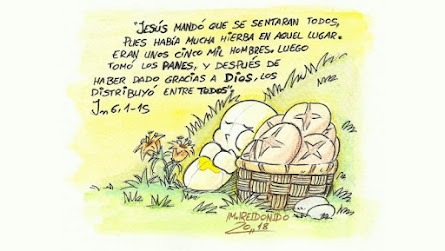 "JESÚS MANDÓ QUE SE SENTARAN TODOS,
PUES HABÍA MUCHA HIERBA EN AQUEL LUGAR.
ERAN UNOS CINCO MIL HOMBRES. LUEGO
TOMÓ LOS PANES, Y DESPUÉS DE
HABER DADO GRACIAS A DIOS, LOS
DISTRIBUYÓ ENTRE TODOS"
Jn 6, 1-15
M.REDONDO
2018